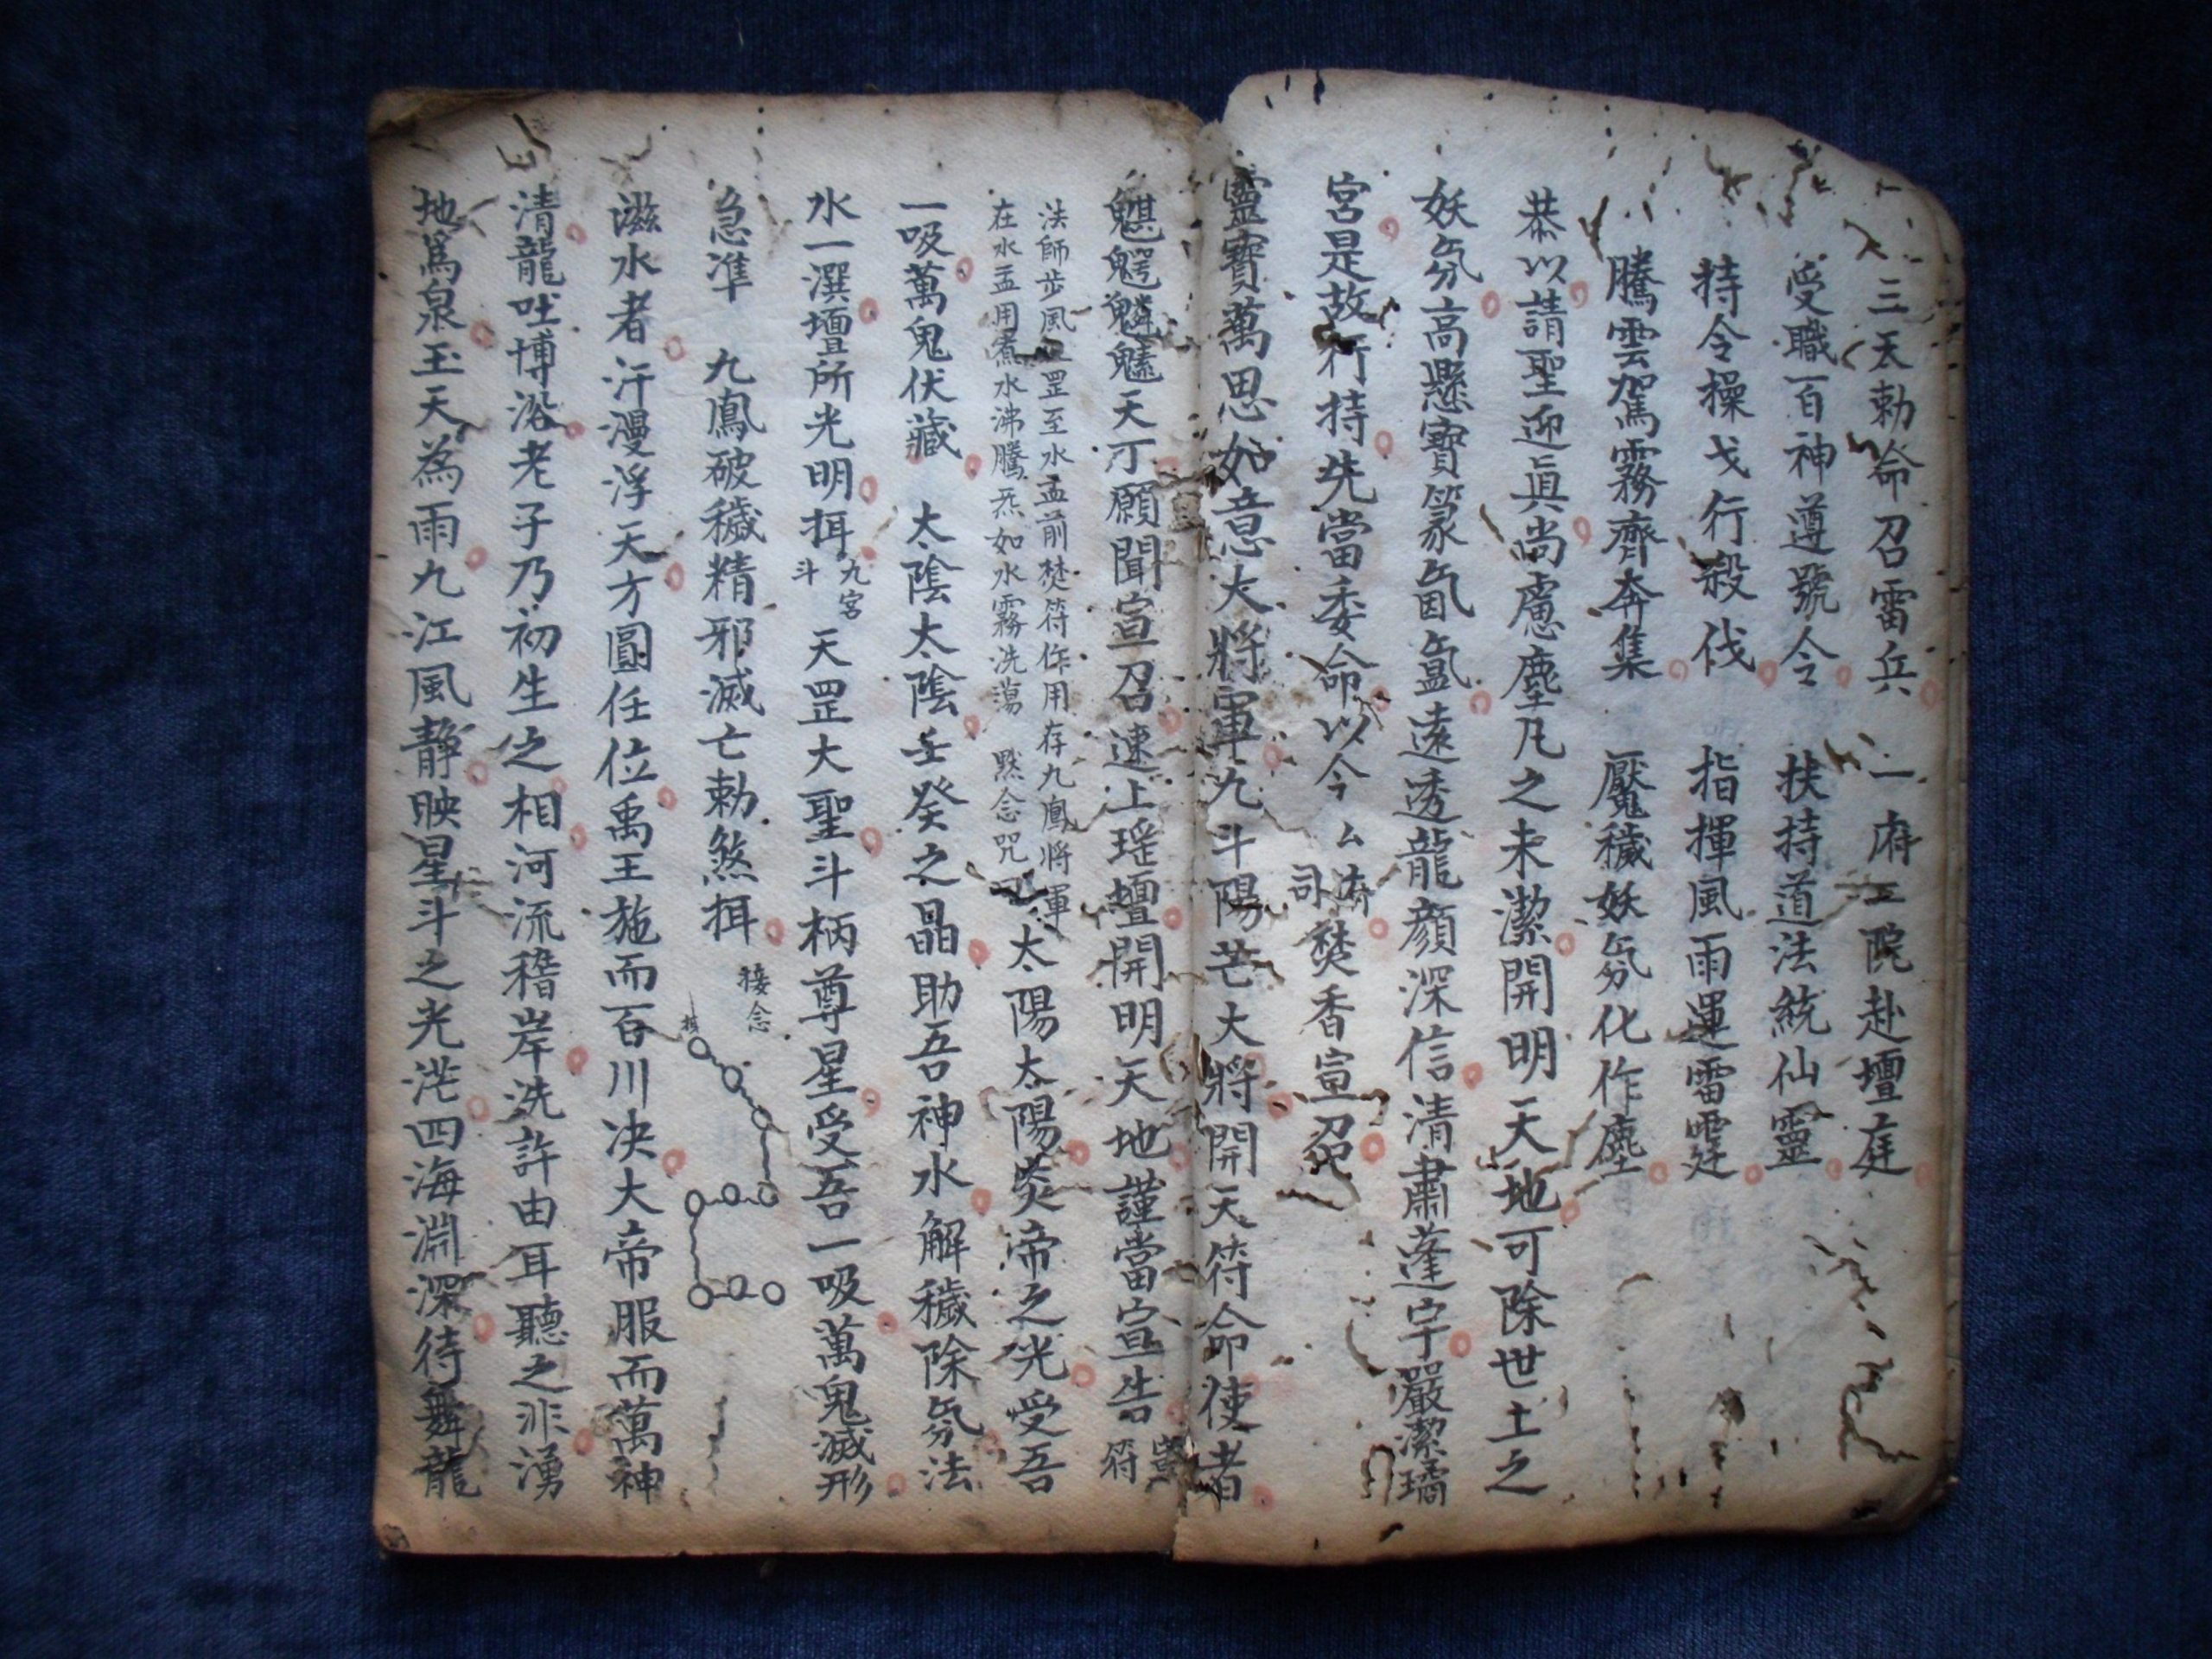 三天勅命召雷兵　一府二院赴壇庭
受職百神遵號令　扶持道法統仙靈
持令操戈行殺伐　指揮風雨運雷霆
騰雲駕霧齊奔集　魘穢妖氛化作塵
恭以請聖迎真尚慮塵凡之未潔開明天地可除世土之
妖氛高懸寶篆氤氳遠透龍顏深信清肅蓬宇嚴潔璚
宮是故行持先當委命以今
司
焚香宣召
靈寶萬思如意大將軍九斗陽芒大將開天符命使者
天丁願聞宣召速上瑤壇開明天地謹當宣告
宣
符
法師步風 罡至水盂前焚符作用存九鳳將軍
在水盂用煮水沸騰炁如水霧洗蕩　黙念咒曰
太陽太陽炎帝之光受吾
一吸萬鬼伏藏　太陰太陰壬癸之晶助吾神水解穢除氛法
水一潠壇所光明揖
九宮
斗
天罡大聖斗柄尊星受吾一吸萬鬼滅形
急準　九鳳破穢精邪滅亡勅煞揖
接念
滋水者汗漫浮天方圓任位禹王施而百川决大帝服而萬神
清龍吐博浴老子乃初生之相河流稽岸洗許由耳聽之非湧
地爲泉玉天為雨九江風静映星斗之光茫四海淵深待舞龍